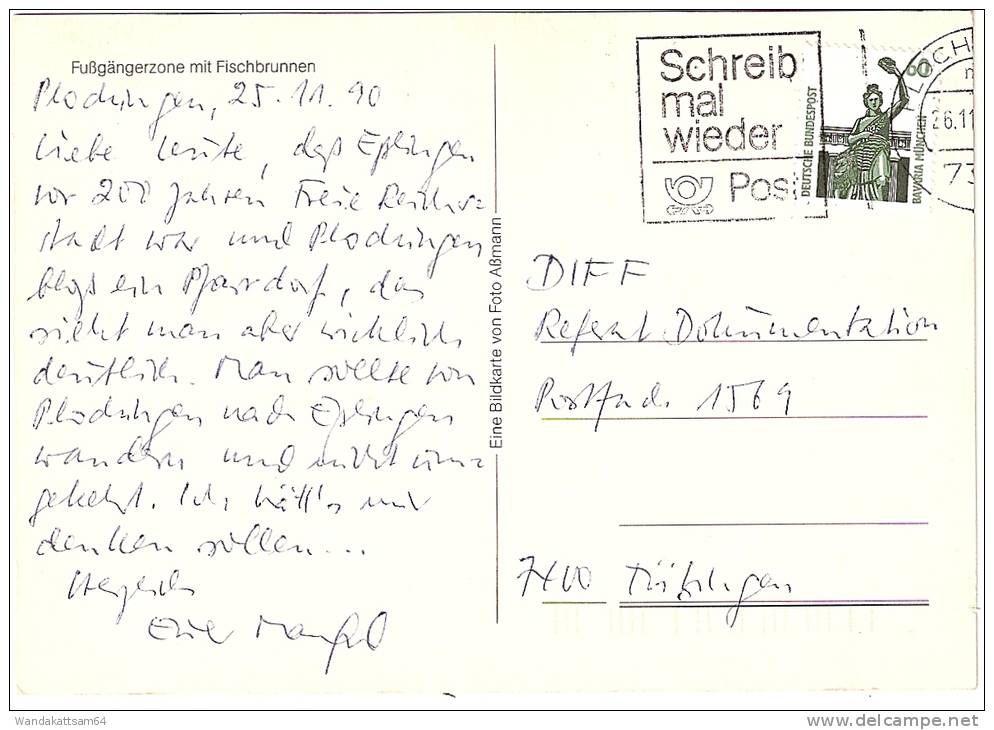 Fußgängerzone mit Fischbrunnen
Plochingen, 25.11.90
Liebe Leute, daß Eßlingen
vor 200 Jahren Freie Reichs=
stadt war und Plochingen
bloß ein Pfarrdorf, das
sieht man aber wirklich
deutlich. Man sollte von
Plochingen nach Eßlingen
wandern und nicht um=
gekehrt. Ich hätt's mir
denken sollen...
Herzlich
Euer Manfred
Eine Bildkarte von Foto Aßmann
Schreib
mal
wieder
Post
DEUTSCHE BUNDESPOST
60
BAVARIA MÜNCHEN
26.11
73
DIFF
Referat Dokumentation
Postfach 1569
7400 Tübingen
Wandakattsam64
www.delcampe.net